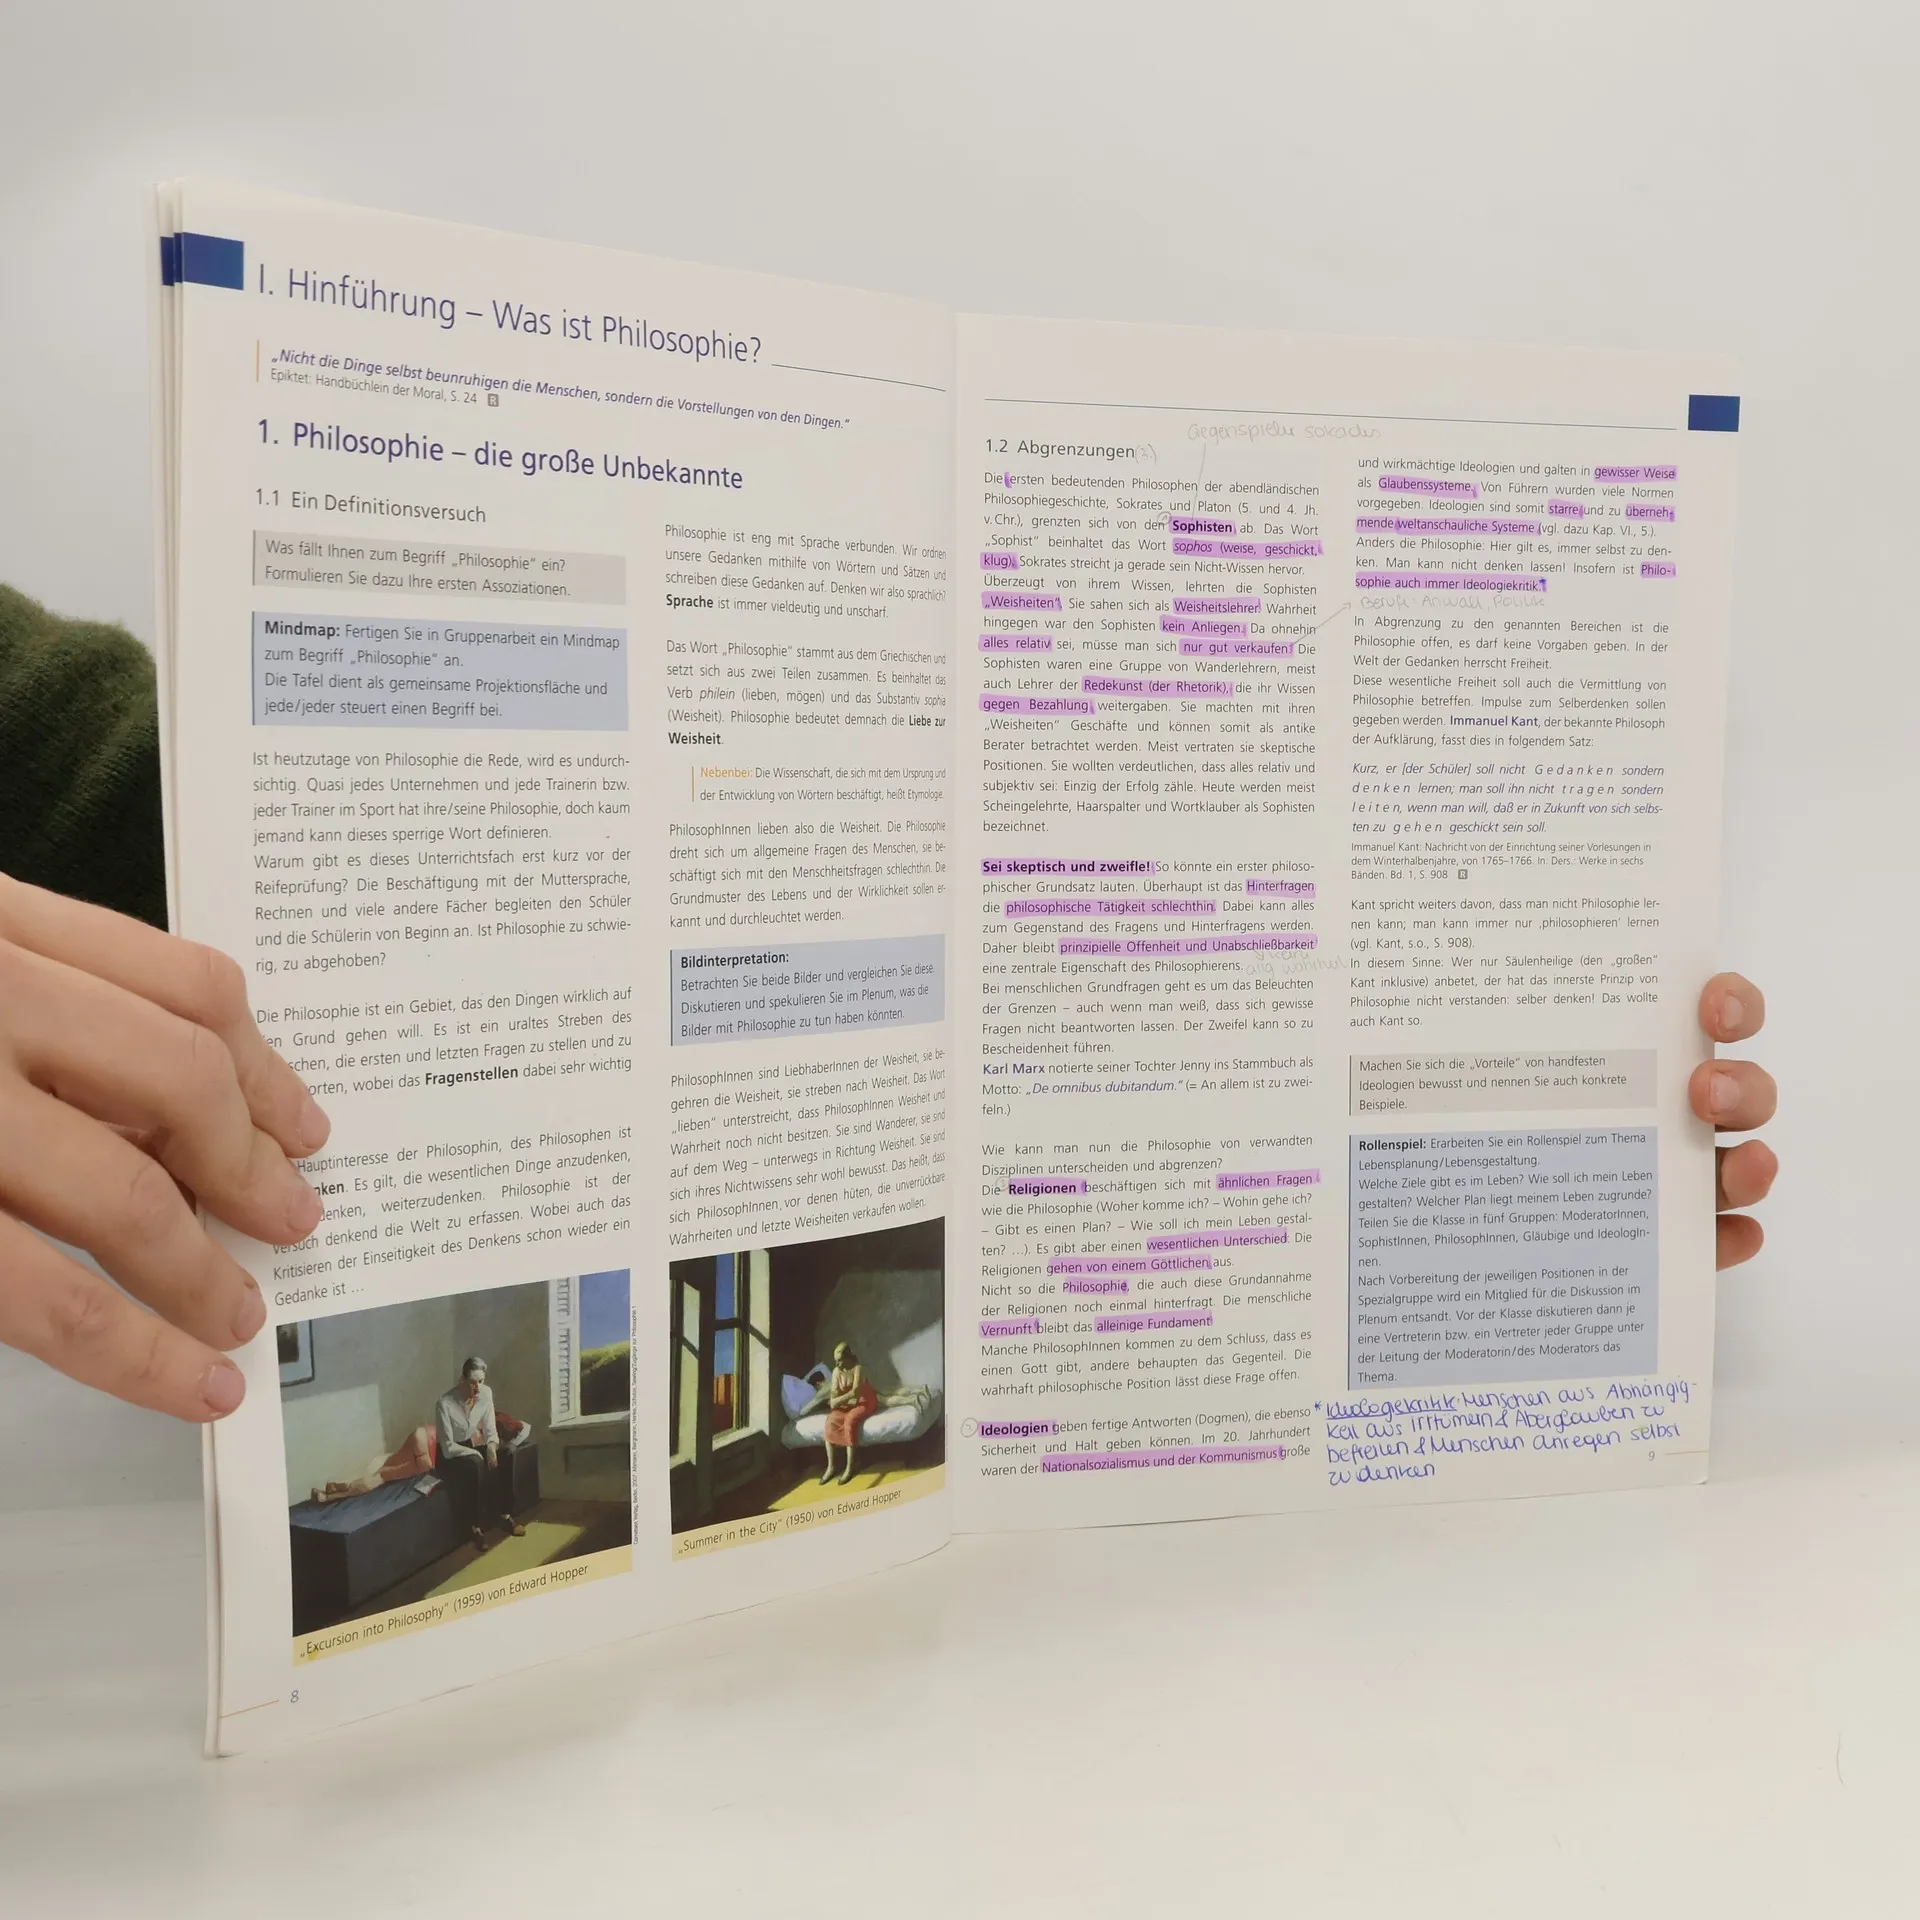 I. Hinführung – Was ist Philosophie?
„Nicht die Dinge selbst beunruhigen die Menschen, sondern die Vorstellungen von den Dingen."
Epiktet: Handbüchlein der Moral, S. 24 R
1. Philosophie – die große Unbekannte
1.1 Ein Definitionsversuch
Was fällt Ihnen zum Begriff „Philosophie" ein?
Formulieren Sie dazu Ihre ersten Assoziationen.
Mindmap: Fertigen Sie in Gruppenarbeit ein Mindmap
zum Begriff „Philosophie" an.
Die Tafel dient als gemeinsame Projektionsfläche und
jede/jeder steuert einen Begriff bei.
Ist heutzutage von Philosophie die Rede, wird es undurch-
sichtig. Quasi jedes Unternehmen und jede Trainerin bzw.
jeder Trainer im Sport hat ihre/seine Philosophie, doch kaum
jemand kann dieses sperrige Wort definieren.
Warum gibt es dieses Unterrichtsfach erst kurz vor der
Reifeprüfung? Die Beschäftigung mit der Muttersprache,
Rechnen und viele andere Fächer begleiten den Schüler
und die Schülerin von Beginn an. Ist Philosophie zu schwie-
rig, zu abgehoben?
Die Philosophie ist ein Gebiet, das den Dingen wirklich auf
en Grund gehen will. Es ist ein uraltes Streben des
schen, die ersten und letzten Fragen zu stellen und zu
orten, wobei das Fragenstellen dabei sehr wichtig
Hauptinteresse der Philosophin, des Philosophen ist
nken. Es gilt, die wesentlichen Dinge anzudenken,
denken, weiterzudenken. Philosophie ist der
Versuch denkend die Welt zu erfassen. Wobei auch das
Kritisieren der Einseitigkeit des Denkens schon wieder ein
Gedanke ist ...
„Excursion into Philosophy" (1959) von Edward Hopper
8
Philosophie ist eng mit Sprache verbunden. Wir ordnen
unsere Gedanken mithilfe von Wörtern und Sätzen und
schreiben diese Gedanken auf. Denken wir also sprachlich?
Sprache ist immer vieldeutig und unscharf.
Das Wort „Philosophie" stammt aus dem Griechischen und
setzt sich aus zwei Teilen zusammen. Es beinhaltet das
Verb philein (lieben, mögen) und das Substantiv sophia
(Weisheit). Philosophie bedeutet demnach die Liebe zur
Weisheit.
Nebenbei: Die Wissenschaft, die sich mit dem Ursprung und
der Entwicklung von Wörtern beschäftigt, heißt Etymologie.
PhilosophInnen lieben also die Weisheit. Die Philosophie
dreht sich um allgemeine Fragen des Menschen, sie be-
schäftigt sich mit den Menschheitsfragen schlechthin. Die
Grundmuster des Lebens und der Wirklichkeit sollen er-
kannt und durchleuchtet werden.
Bildinterpretation:
Betrachten Sie beide Bilder und vergleichen Sie diese.
Diskutieren und spekulieren Sie im Plenum, was die
Bilder mit Philosophie zu tun haben könnten.
PhilosophInnen sind LiebhaberInnen der Weisheit, sie be-
gehren die Weisheit, sie streben nach Weisheit. Das Wort
„lieben" unterstreicht, dass PhilosophInnen Weisheit und
Wahrheit noch nicht besitzen. Sie sind Wanderer, sie sind
auf dem Weg – unterwegs in Richtung Weisheit. Sie sind
sich ihres Nichtwissens sehr wohl bewusst. Das heißt, dass
sich PhilosophInnen, vor denen hüten, die unverrückbare
Wahrheiten und letzte Weisheiten verkaufen wollen.
„Summer in the City" (1950) von Edward Hopper
Gegenspieler Sokrates
1.2 Abgrenzungen
Die ersten bedeutenden Philosophen der abendländischen
Philosophiegeschichte, Sokrates und Platon (5. und 4. Jh.
v. Chr.), grenzten sich von den Sophisten ab. Das Wort
„Sophist" beinhaltet das Wort sophos (weise, geschickt,
klug). Sokrates streicht ja gerade sein Nicht-Wissen hervor.
Überzeugt von ihrem Wissen, lehrten die Sophisten
„Weisheiten". Sie sahen sich als Weisheitslehrer. Wahrheit
hingegen war den Sophisten kein Anliegen. Da ohnehin
alles relativ sei, müsse man sich nur gut verkaufen. Die
Sophisten waren eine Gruppe von Wanderlehrern, meist
auch Lehrer der Redekunst (der Rhetorik), die ihr Wissen
gegen Bezahlung weitergaben. Sie machten mit ihren
„Weisheiten" Geschäfte und können somit als antike
Berater betrachtet werden. Meist vertraten sie skeptische
Positionen. Sie wollten verdeutlichen, dass alles relativ und
subjektiv sei: Einzig der Erfolg zähle. Heute werden meist
Scheingelehrte, Haarspalter und Wortklauber als Sophisten
bezeichnet.
Sei skeptisch und zweifle! So könnte ein erster philoso-
phischer Grundsatz lauten. Überhaupt ist das Hinterfragen
die philosophische Tätigkeit schlechthin. Dabei kann alles
zum Gegenstand des Fragens und Hinterfragens werden.
Daher bleibt prinzipielle Offenheit und Unabschließbarkeit
eine zentrale Eigenschaft des Philosophierens.
Bei menschlichen Grundfragen geht es um das Beleuchten
der Grenzen – auch wenn man weiß, dass sich gewisse
Fragen nicht beantworten lassen. Der Zweifel kann so zu
Bescheidenheit führen.
Karl Marx notierte seiner Tochter Jenny ins Stammbuch als
Motto: „De omnibus dubitandum." (= An allem ist zu zwei-
feln.)
Wie kann man nun die Philosophie von verwandten
Disziplinen unterscheiden und abgrenzen?
Die Religionen beschäftigen sich mit ähnlichen Fragen
wie die Philosophie (Woher komme ich? – Wohin gehe ich?
– Gibt es einen Plan? – Wie soll ich mein Leben gestal-
ten? ...). Es gibt aber einen wesentlichen Unterschied: Die
Religionen gehen von einem Göttlichen aus.
Nicht so die Philosophie, die auch diese Grundannahme
der Religionen noch einmal hinterfragt. Die menschliche
Vernunft bleibt das alleinige Fundament.
Manche PhilosophInnen kommen zu dem Schluss, dass es
einen Gott gibt, andere behaupten das Gegenteil. Die
wahrhaft philosophische Position lässt diese Frage offen.
Ideologien geben fertige Antworten (Dogmen), die ebenso
Sicherheit und Halt geben können. Im 20. Jahrhundert
waren der Nationalsozialismus und der Kommunismus große
und wirkmächtige Ideologien und galten in gewisser Weise
als Glaubenssysteme. Von Führern wurden viele Normen
vorgegeben. Ideologien sind somit starre und zu überneh-
mende weltanschauliche Systeme (vgl. dazu Kap. VI., 5.).
Anders die Philosophie: Hier gilt es, immer selbst zu den-
ken. Man kann nicht denken lassen! Insofern ist Philo-
sophie auch immer Ideologiekritik.*
Berufe: Anwalt, Politik
In Abgrenzung zu den genannten Bereichen ist die
Philosophie offen, es darf keine Vorgaben geben. In der
Welt der Gedanken herrscht Freiheit.
Diese wesentliche Freiheit soll auch die Vermittlung von
Philosophie betreffen. Impulse zum Selberdenken sollen
gegeben werden. Immanuel Kant, der bekannte Philosoph
der Aufklärung, fasst dies in folgendem Satz:
Kurz, er [der Schüler] soll nicht Gedanken sondern
denken lernen; man soll ihn nicht tragen sondern
leiten, wenn man will, daß er in Zukunft von sich selbs-
ten zu gehen geschickt sein soll.
Immanuel Kant: Nachricht von der Einrichtung seiner Vorlesungen in
dem Winterhalbenjahre, von 1765–1766. In: Ders.: Werke in sechs
Bänden. Bd. 1, S. 908 R
Kant spricht weiters davon, dass man nicht Philosophie ler-
nen kann; man kann immer nur ‚philosophieren' lernen
(vgl. Kant, s.o., S. 908).
In diesem Sinne: Wer nur Säulenheilige (den „großen"
Kant inklusive) anbetet, der hat das innerste Prinzip von
Philosophie nicht verstanden: selber denken! Das wollte
auch Kant so.
Machen Sie sich die „Vorteile" von handfesten
Ideologien bewusst und nennen Sie auch konkrete
Beispiele.
Rollenspiel: Erarbeiten Sie ein Rollenspiel zum Thema
Lebensplanung/Lebensgestaltung.
Welche Ziele gibt es im Leben? Wie soll ich mein Leben
gestalten? Welcher Plan liegt meinem Leben zugrunde?
Teilen Sie die Klasse in fünf Gruppen: ModeratorInnen,
SophistInnen, PhilosophInnen, Gläubige und IdeologIn-
nen.
Nach Vorbereitung der jeweiligen Positionen in der
Spezialgruppe wird ein Mitglied für die Diskussion im
Plenum entsandt. Vor der Klasse diskutieren dann je
eine Vertreterin bzw. ein Vertreter jeder Gruppe unter
der Leitung der Moderatorin/des Moderators das
Thema.
* Ideologiekritik: Menschen aus Abhängig-
keit aus Irrtümern & Aberglauben zu
befreien & Menschen anregen selbst
zu denken
9